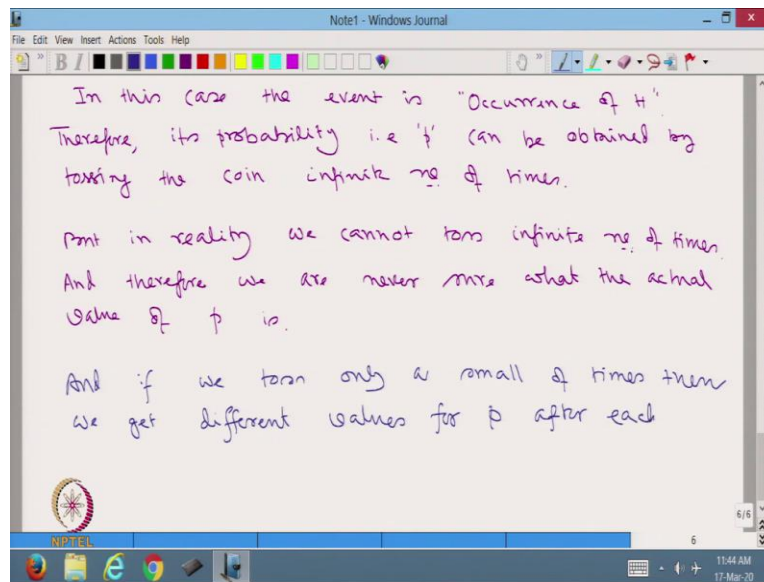 Note1 - Windows Journal
File Edit View Insert Actions Tools Help
B I
In this case the event is "Occurrence of H".
Therefore, its probability i.e 'p' can be obtained by
tossing the coin infinite no of times.
But in reality we cannot toss infinite no. of times.
And therefore we are never sure what the actual
value of p is.
And if we toss only a small of times then
we get different values for p after each
NPTEL
6/6
6
11:44 AM
17-Mar-20